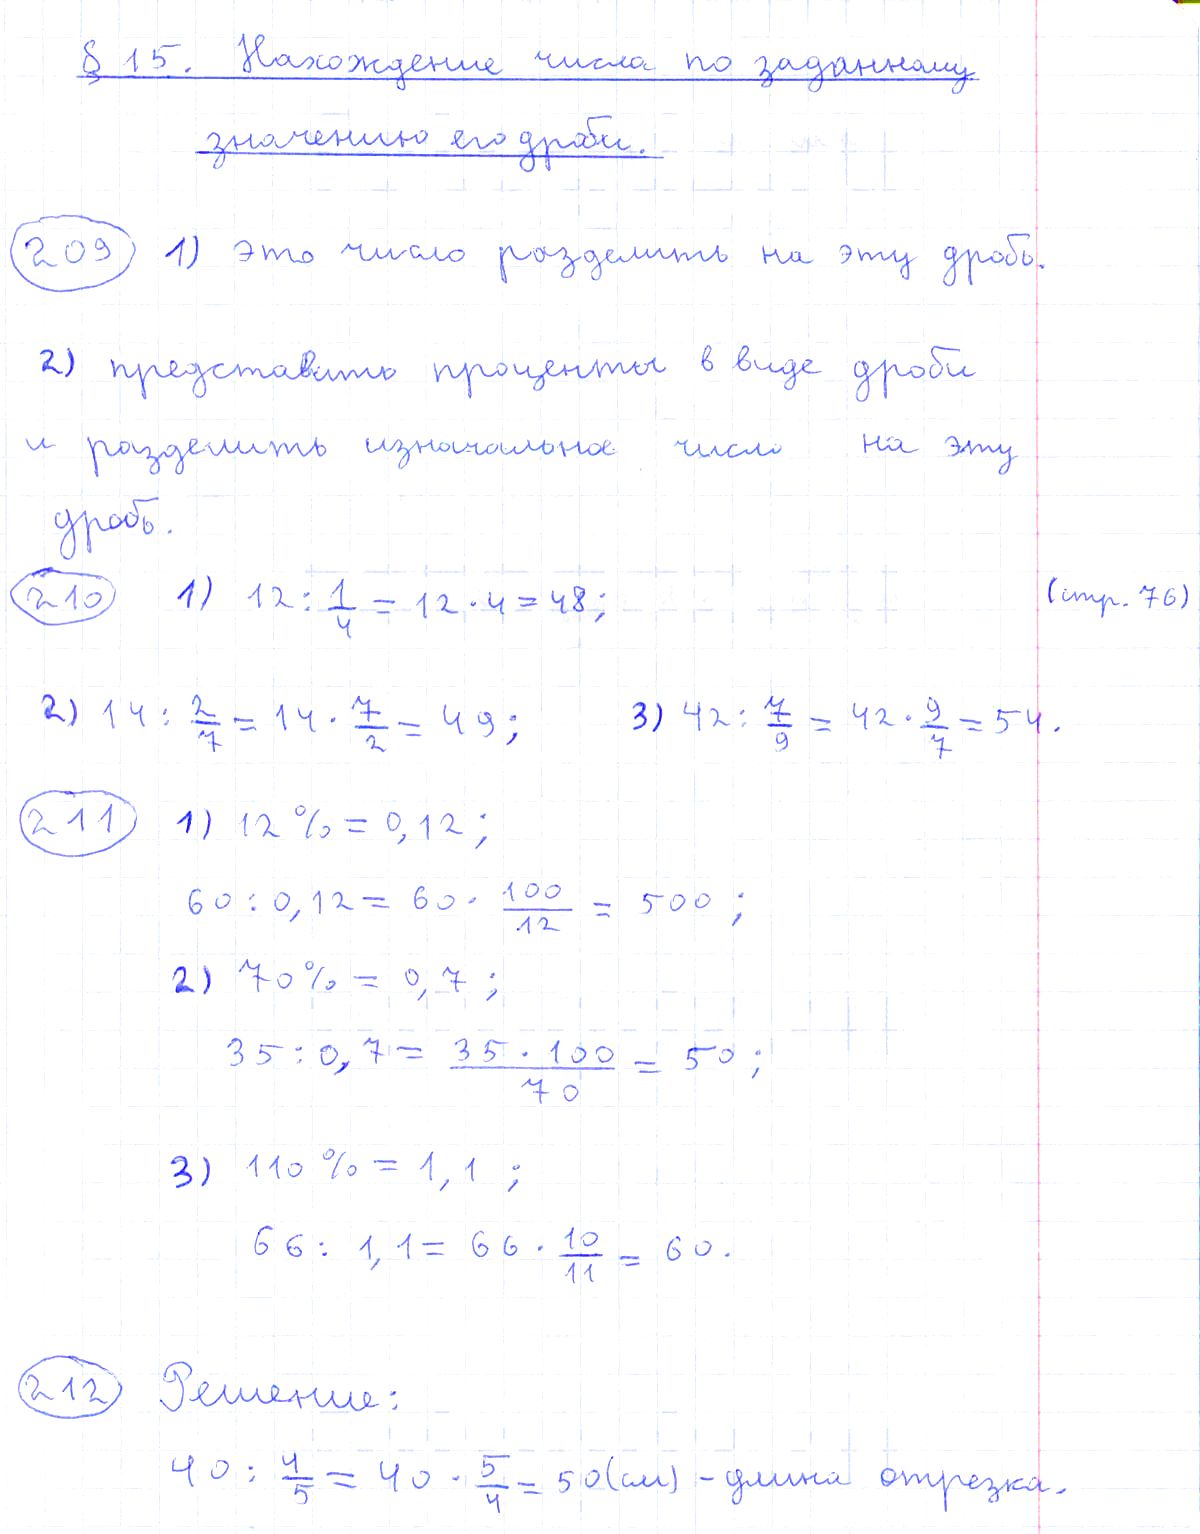 § 15. Нахождение числа по заданному
значению его дроби.
209 1) Это число разделить на эту дробь.
2) представить проценты в виде дроби
и разделить изначальное число на эту
дробь.
210 1) 12 : 1/4 = 12 · 4 = 48; (стр. 76)
2) 14 : 2/7 = 14 · 7/2 = 49; 3) 42 : 7/9 = 42 · 9/7 = 54.
211 1) 12 % = 0,12;
60 : 0,12 = 60 · 100/12 = 500;
2) 70 % = 0,7;
35 : 0,7 = 35 · 100/70 = 50;
3) 110 % = 1,1;
66 : 1,1 = 66 · 10/11 = 60.
212 Решение:
40 : 4/5 = 40 · 5/4 = 50 (см) - длина отрезка.